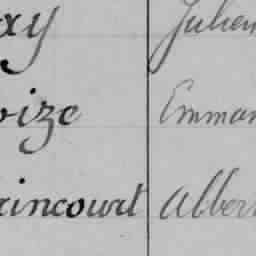 ay Julien
oize Emman
rincourt Alber